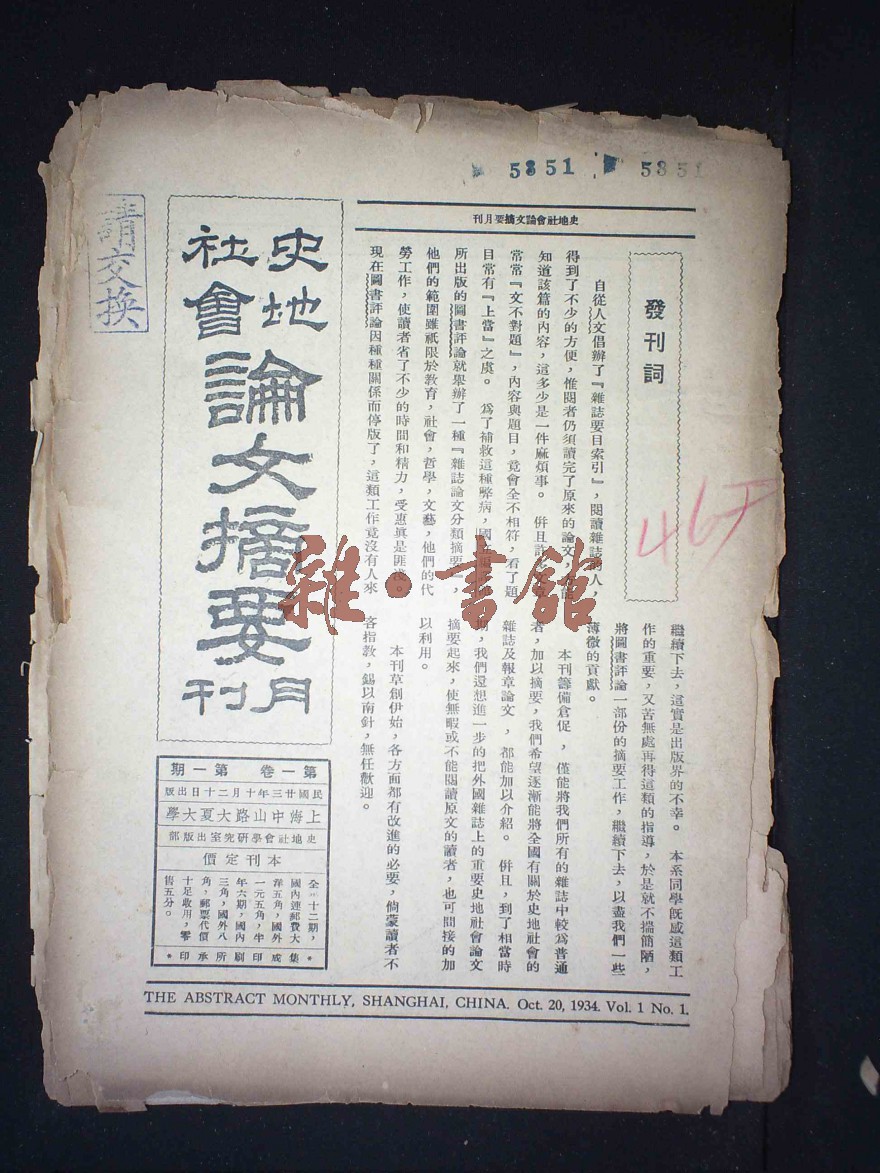 5351
5351
請交換
史地社會論文摘要月刊
史地
社會
論文摘要
月刊
發刊詞
自從人文倡辦了『雜誌要目索引』，閱讀雜誌的人，
得到了不少的方便，惟閱者仍須讀完了原來的論文，方能
知道該篇的內容，這多少是一件麻煩事。 併且許多文章
常常『文不對題』，內容與題目，竟會全不相符，看了題
目常有『上當』之虞。 爲了補救這種弊病，國立
所出版的圖書評論就舉辦了一種『雜誌論文分類摘要』，
他們的範圍雖祇限於教育，社會，哲學，文藝，他們的代
勞工作，使讀者省了不少的時間和精力，受惠眞是匪淺。
現在圖書評論因種種關係而停版了，這類工作竟沒有人來
繼續下去，這實是出版界的不幸。 本系同學旣感這類工
作的重要，又苦無處再得這類的指導，於是就不揣簡陋，
將圖書評論一部份的摘要工作，繼續下去，以盡我們一些
薄微的貢獻。
本刊籌備倉促，僅能將我們所有的雜誌中較爲普通
者，加以摘要，我們希望逐漸能將全國有關於史地社會的
雜誌及報章論文，都能加以介紹。 併且，到了相當時
期，我們還想進一步的把外國雜誌上的重要史地社會論文
摘要起來，使無暇或不能閱讀原文的讀者，也可間接的加
以利用。
本刊草創伊始，各方面都有改進的必要，倘蒙讀者不
吝指教，錫以南針，無任歡迎。
第一卷 第一期
民國廿三年十月二十日出版
上海中山路大夏大學
史地社會學研究室出版部
本刊定價
全年十二期，
國內連郵費大
洋五角，國外
一元五角，半
年六期，國內
三角，國外八
角，郵票代價
十足收用，零
售五分。
集成印刷所承印
THE ABSTRACT MONTHLY, SHANGHAI, CHINA. Oct. 20, 1934. Vol. 1 No. 1.
雜·書館